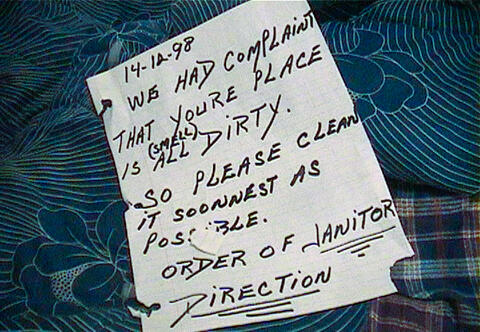 14-12-98
WE HAD COMPLAINT
THAT YOURE PLACE
IS (SMELL) ALL DIRTY.
SO PLEASE CLEAN
IT SOONNEST AS
POSSIBLE.
ORDER OF JANITOR
DIRECTION